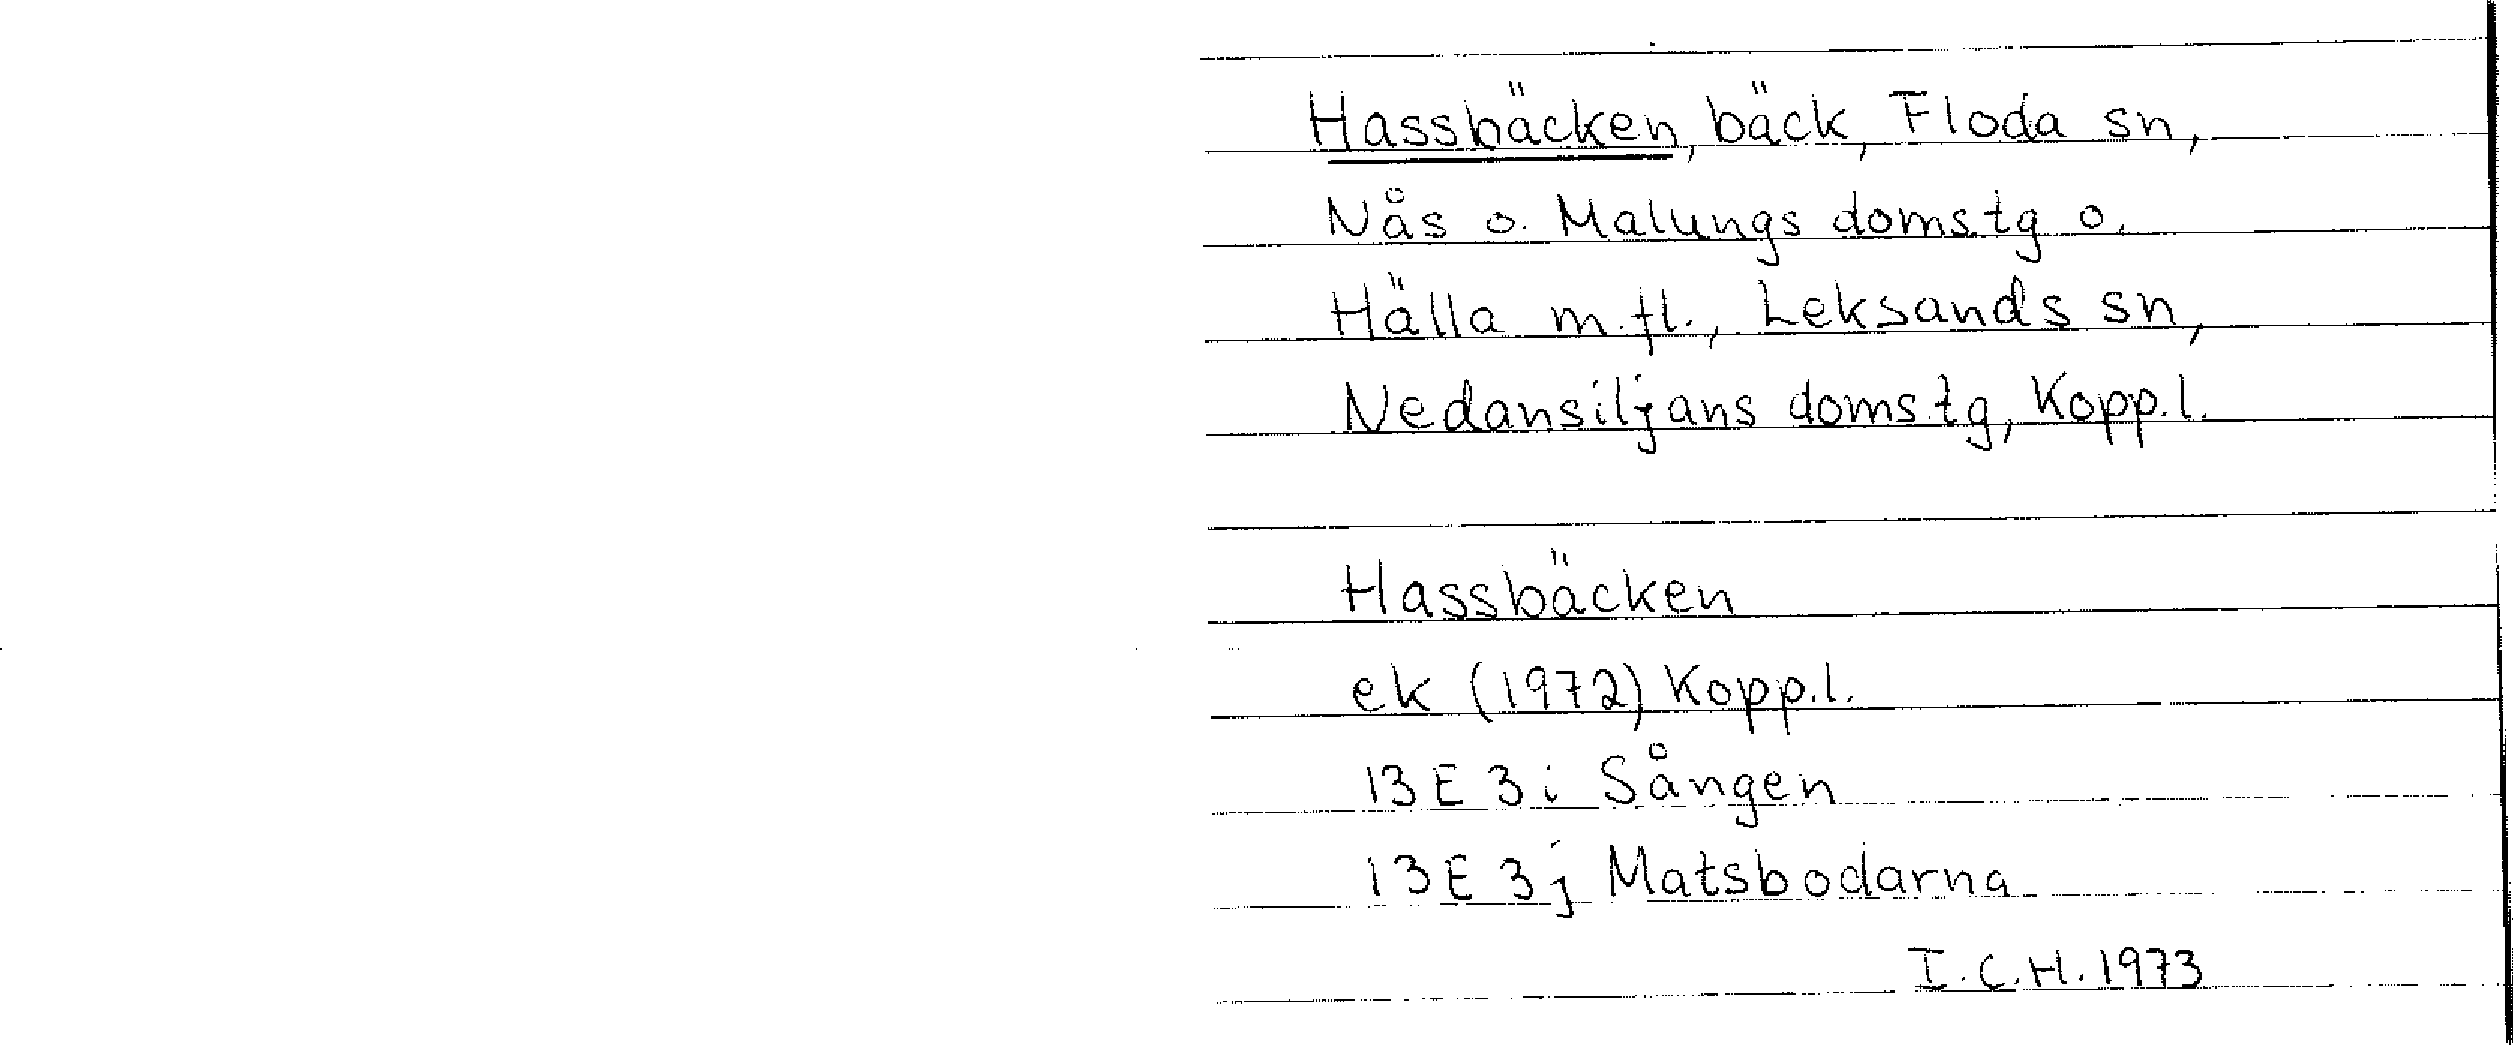 Hassbäcken, bäck, Floda sn,
Nås o. Malungs domstg o.
Hälla m.fl., Leksands sn,
Nedansiljans domstg, Kopp.l.
Hassbäcken
ek (1972) Kopp.l.
13 E 3 i Sången
13 E 3 j Matsbodarna
I.C.H. 1973